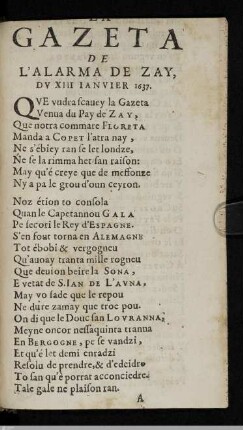 LA
GAZETA
DE
L'ALARMA DE ZAY,
DV XIII IANVIER 1637.
QVE vudra scauey la Gazeta
Venua du Pay de ZAY,
Que notra commare FLORETA
Manda a COPET l'atra nay,
Ne s'ébiey ran se let londze,
Ne se la rimma het san raison:
May qu'é creye que de messonze
Ny a pa le grou d'oun ceyron.
Noz étion to consola
Quan le Capetannou GALA
Pe secori le Rey d'ESPAGNE.
S'en fout torna en ALEMAGNE
Tot ébobi & vergogneu
Qu'auoay tranta mille rogneu
Que deuion beire la SONA,
E vetat de S. IAN DE L'AVNA,
May vo sade que le repou
Ne dure zamay que troc pou.
On di que le Douc san LOVRANNA,
Meyne oncor nessaquinta tranna
En BERGOGNE, pe se vandzi,
Et qu'é let demi enradzi
Resoiu de prendre, & d'edcidre
To san qu'é porrat acconciedre.
Tale gale ne plaison ran.
A